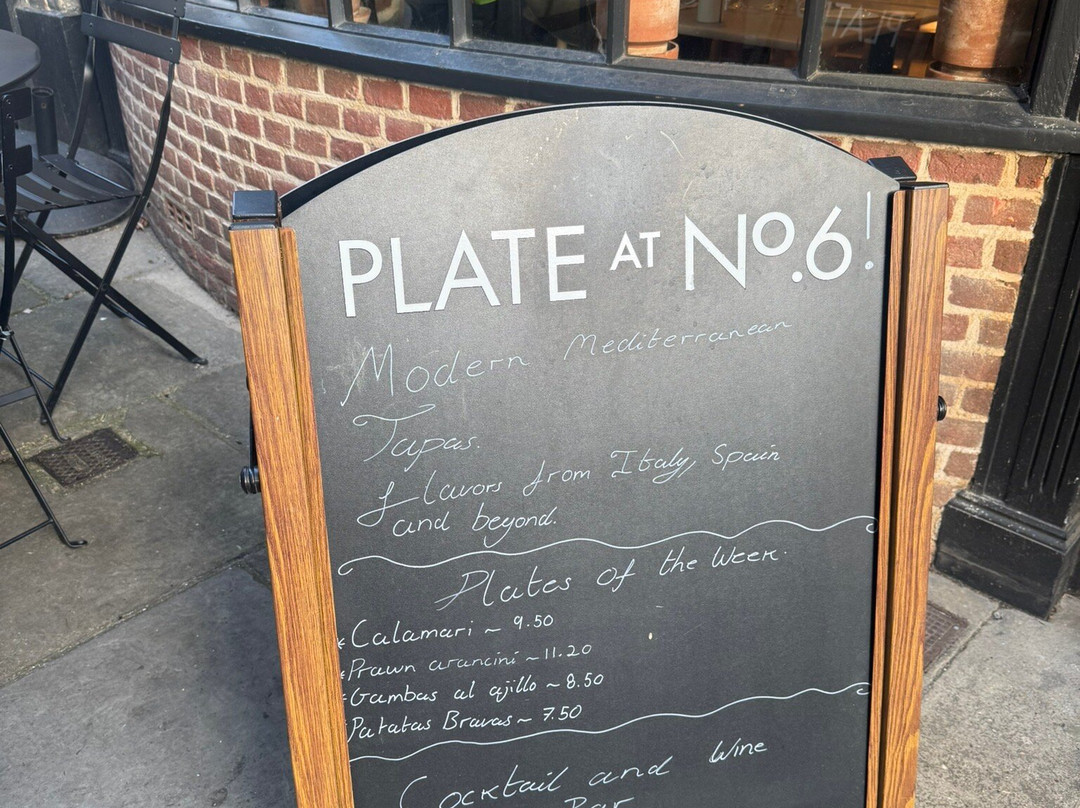 PLATE AT Nº.6!
Modern Mediterranean
Tapas.
flavors from Italy, Spain
and beyond.
Plates of the Week.
Calamari ~ 9.50
Prawn arancini ~ 11.20
Gambas al ajillo ~ 8.50
Patatas Bravas ~ 7.50
Cocktail and Wine
Bar